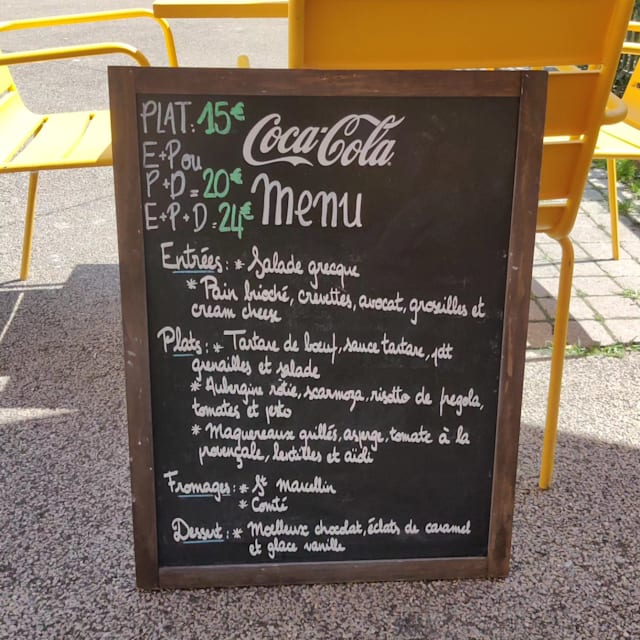 PLAT: 15€
E+P ou
P+D = 20€
E+P+D = 24€
Coca-Cola
Menu
Entrées: * Salade grecque
* Pain brioché, crevettes, avocat, groseilles et
cream cheese
Plats: * Tartare de bœuf, sauce tartare, pdt
grenailles et salade
* Aubergine rôtie, scarmoza, risotto de fregola,
tomates et pesto
* Maquereaux grillés, asperge, tomate à la
provençale, lentilles et aïoli
Fromages: * St Marcellin
* Comté
Dessert: * Moelleux chocolat, éclats de caramel
et glace vanille